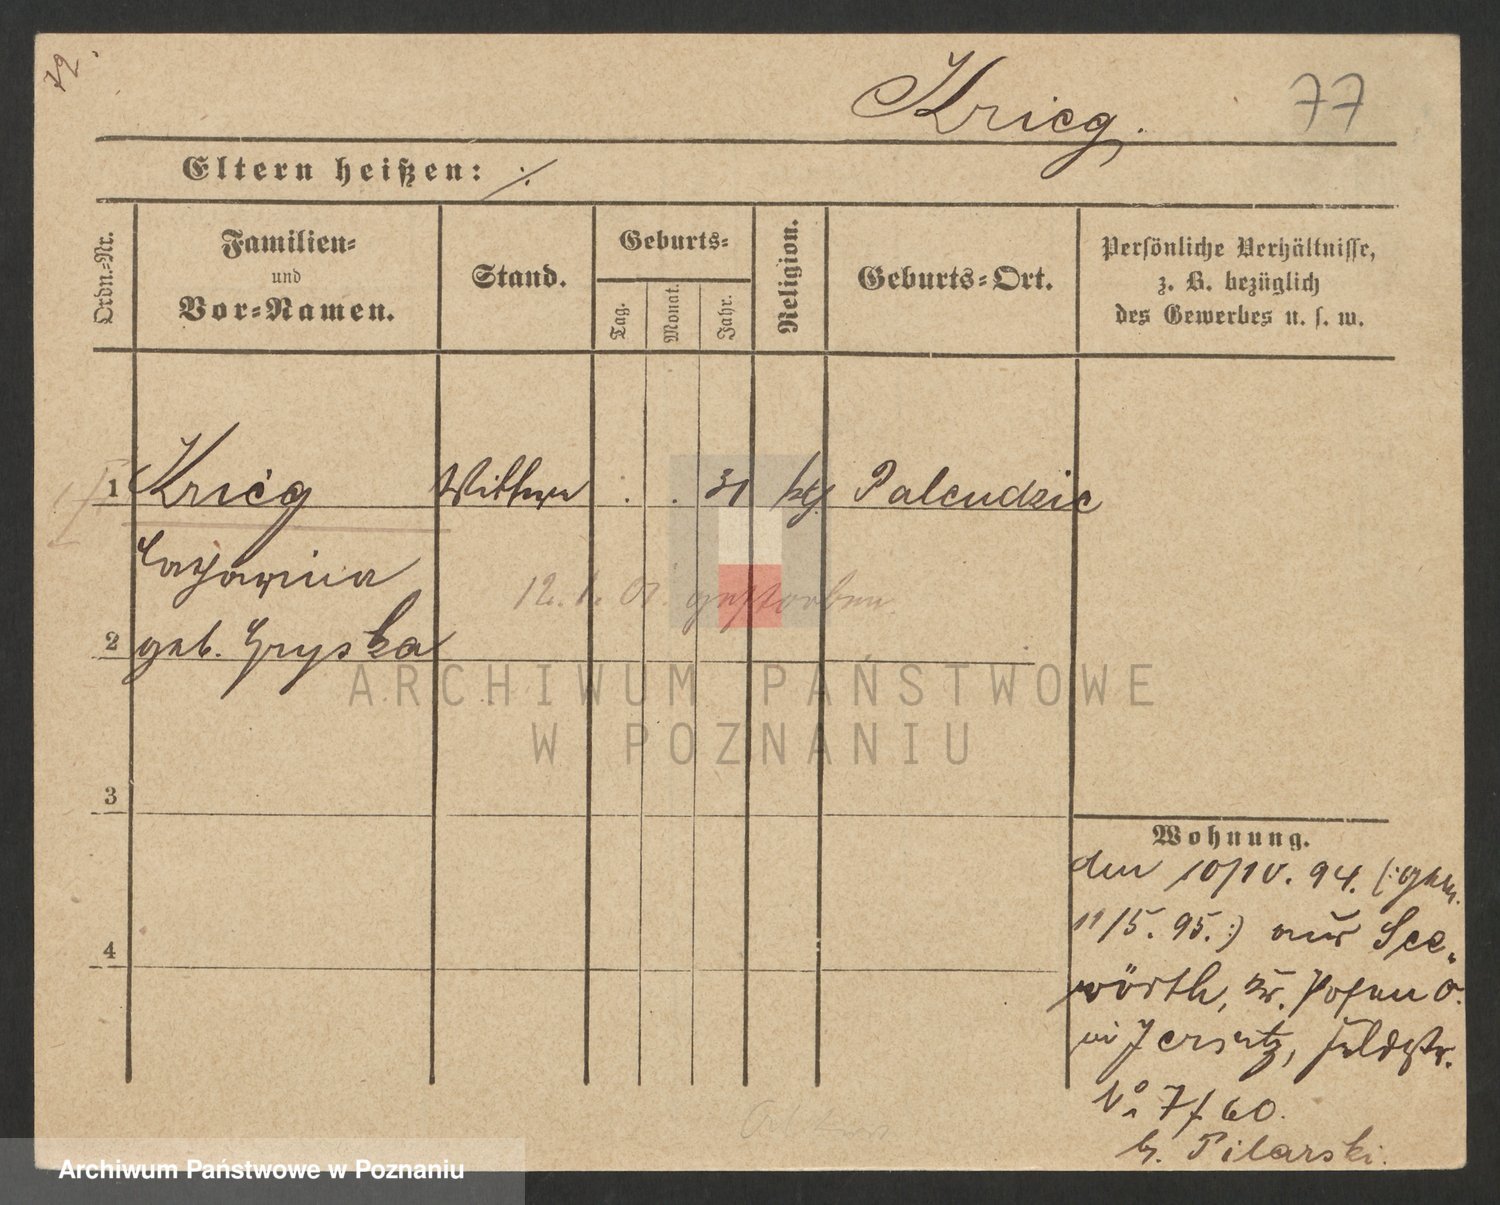 Krieg.
77
Eltern heißen: ·/·
Ordn.-Nr.
Familien-
und
Vor-Namen.
Stand.
Geburts-
Tag.
Monat.
Jahr.
Religion.
Geburts-Ort.
Persönliche Verhältnisse,
z. B. bezüglich
des Gewerbes u. s. w.
1 Krieg Wittwe . . 31 ktͪ. Palendzie
Catharina
12. 1. 01. gestorben.
2 geb. Gryska
3
4
Wohnung.
den 10/10. 94. (: gem.
11/5. 95. :) aus See-
wörth, Kr. Posen O.
in Jersitz, Feldstr.
No 7/60.
b. Pilarski.
ARCHIWUM PAŃSTWOWE
W POZNANIU
Archiwum Państwowe w Poznaniu